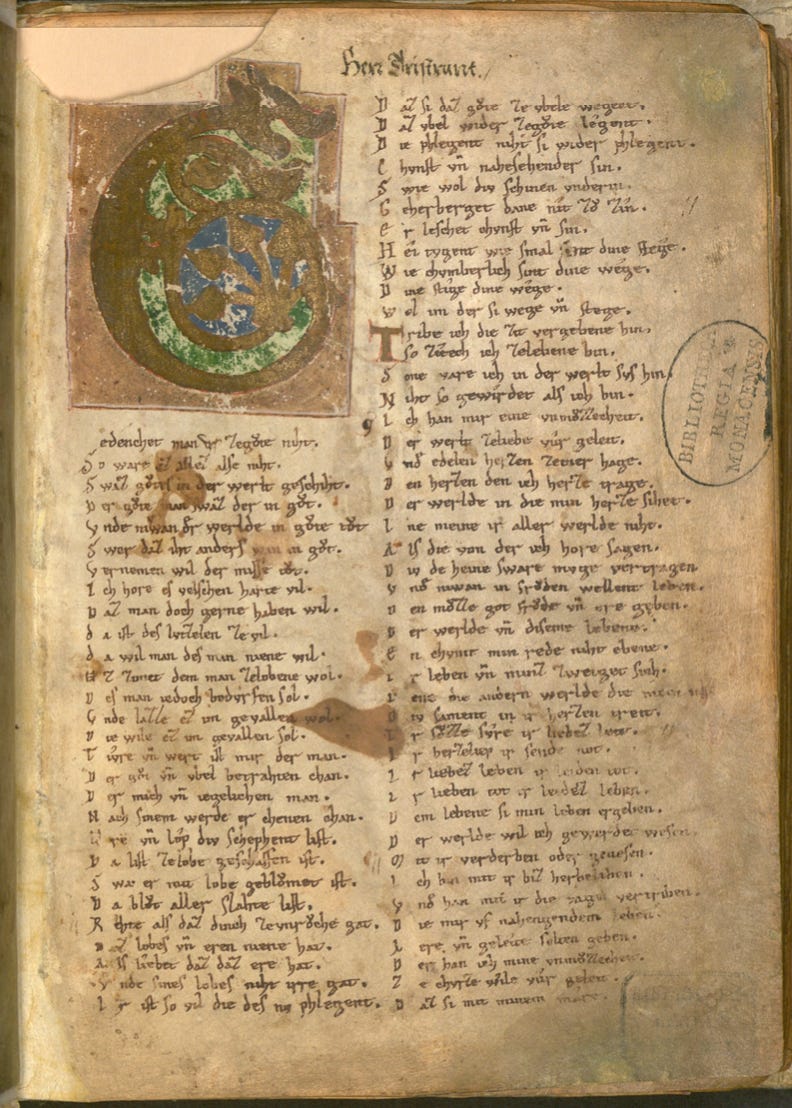 Herr Tristrant.
G
edenchet man ir zegůte niht.
So ware ez allez alse niht.
Swaz gůtes in der werlt geschiht.
Der gůte man swaz der in gůt.
Vnde niwan der werlde in gůte tůt
Swer daz iht anders wan in gůt.
Vernemen wil der misse tůt.
Ich hore es velschen harte vil.
Daz man doch gerne haben wil.
da ist des lvtzelen ze vil.
da wil man des man niene wil.
Ez zimet dem man zelobene wol
Des man iedoch bedvrfen sol.
Vnde lazze ez im gevallen wol.
Die wile ez im gevallen sol.
Tivre vñ wert ist mir der man.
Der gůt vñ vbel betrahten chan.
Der mich vñ iegelichen man.
Nach sinem werde er chenen chan.
Ere vñ lop div schephent list.
Da list zelobe geschaffen ist.
Swa er mit lobe geblůmet ist.
Da blůt aller slahte list.
Rehte als daz dinch zevnrůche gat.
Daz lobes vñ eren niene hat.
Als liebet daz daz ere hat.
Vnde sines lobes niht irre gat.
Ir ist so vil die des nv phlegent.
Daz si daz gůte ze vbele wegent.
Daz vbel wider zegůte wegent.
Die phlegent niht si wider phlegent.
Chvnst vñ nahesehender sin.
Swie wol div schinen vnder in.
Geherberget dane nit zů zin.
Er leschet chvnst vñ sin.
Hei tvgent wie smal sint dine stege.
Wie chvmberlich sint dine wege.
Die stige dine wege.
Wol im der si wege vñ stege.
Tribe ich die zit vergebene hin,
So zitech ich zelebene bin.
Sone vare ich in der werlt svs hin
Niht so gewirdet als ich bin.
Ich han mir eine vnmůzzecheit.
Der werlt zeliebe vür geleit.
Vnd edelen herzen zeiner hage.
Den herzen den ich herze trage.
Der werlde in die min herze sihet.
Ine meine ir aller werlde niht.
Als die von der ich hore sagen.
Div deheine sware mvge vertragen
Vnd niwan in frŏden wellent leben.
Den můzze got frŏde vñ ere geben.
Der werlde vñ diseme lebene.
En chvmt min rede niht ebene.
Ir leben vñ minz zweiget sich.
eine die andern werlde die meine
Div sament in ir herzen treit.
Ir sŏzze sŏre ir liebez leit.
Ir herzeliep ir sende not.
Ir liebez leben ir leiden tot.
Ir lieben tot ir leidez leben.
Dem lebene si min leben ergeben.
Der werlde wil ich gewerldet wesen.
Mit ir verderben oder genesen.
Ich bin mit ir biz her beliben.
Vnd han mit ir die tage vertriben.
Die mir vf nahengendem leben.
Lere vñ geleite solten geben.
Der han ich mine vnmůzzecheit.
Ze chvrze wile vür geleit.
Daz si mit minem mare.
BIBLIOTHECA
REGIA
MONACENSIS